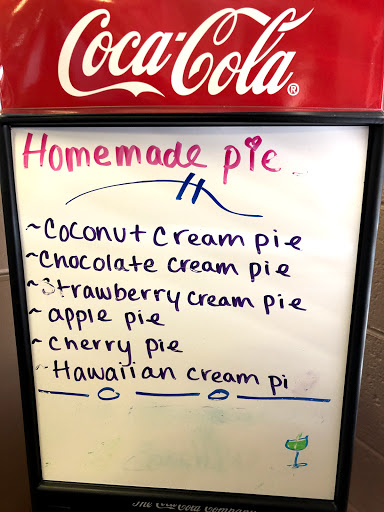 Coca-Cola®
Homemade pie
~Coconut Cream pie
~Chocolate cream pie
~Strawberry cream pie
~apple pie
~Cherry pie
~Hawaiian cream pi
The Coca-Cola Company